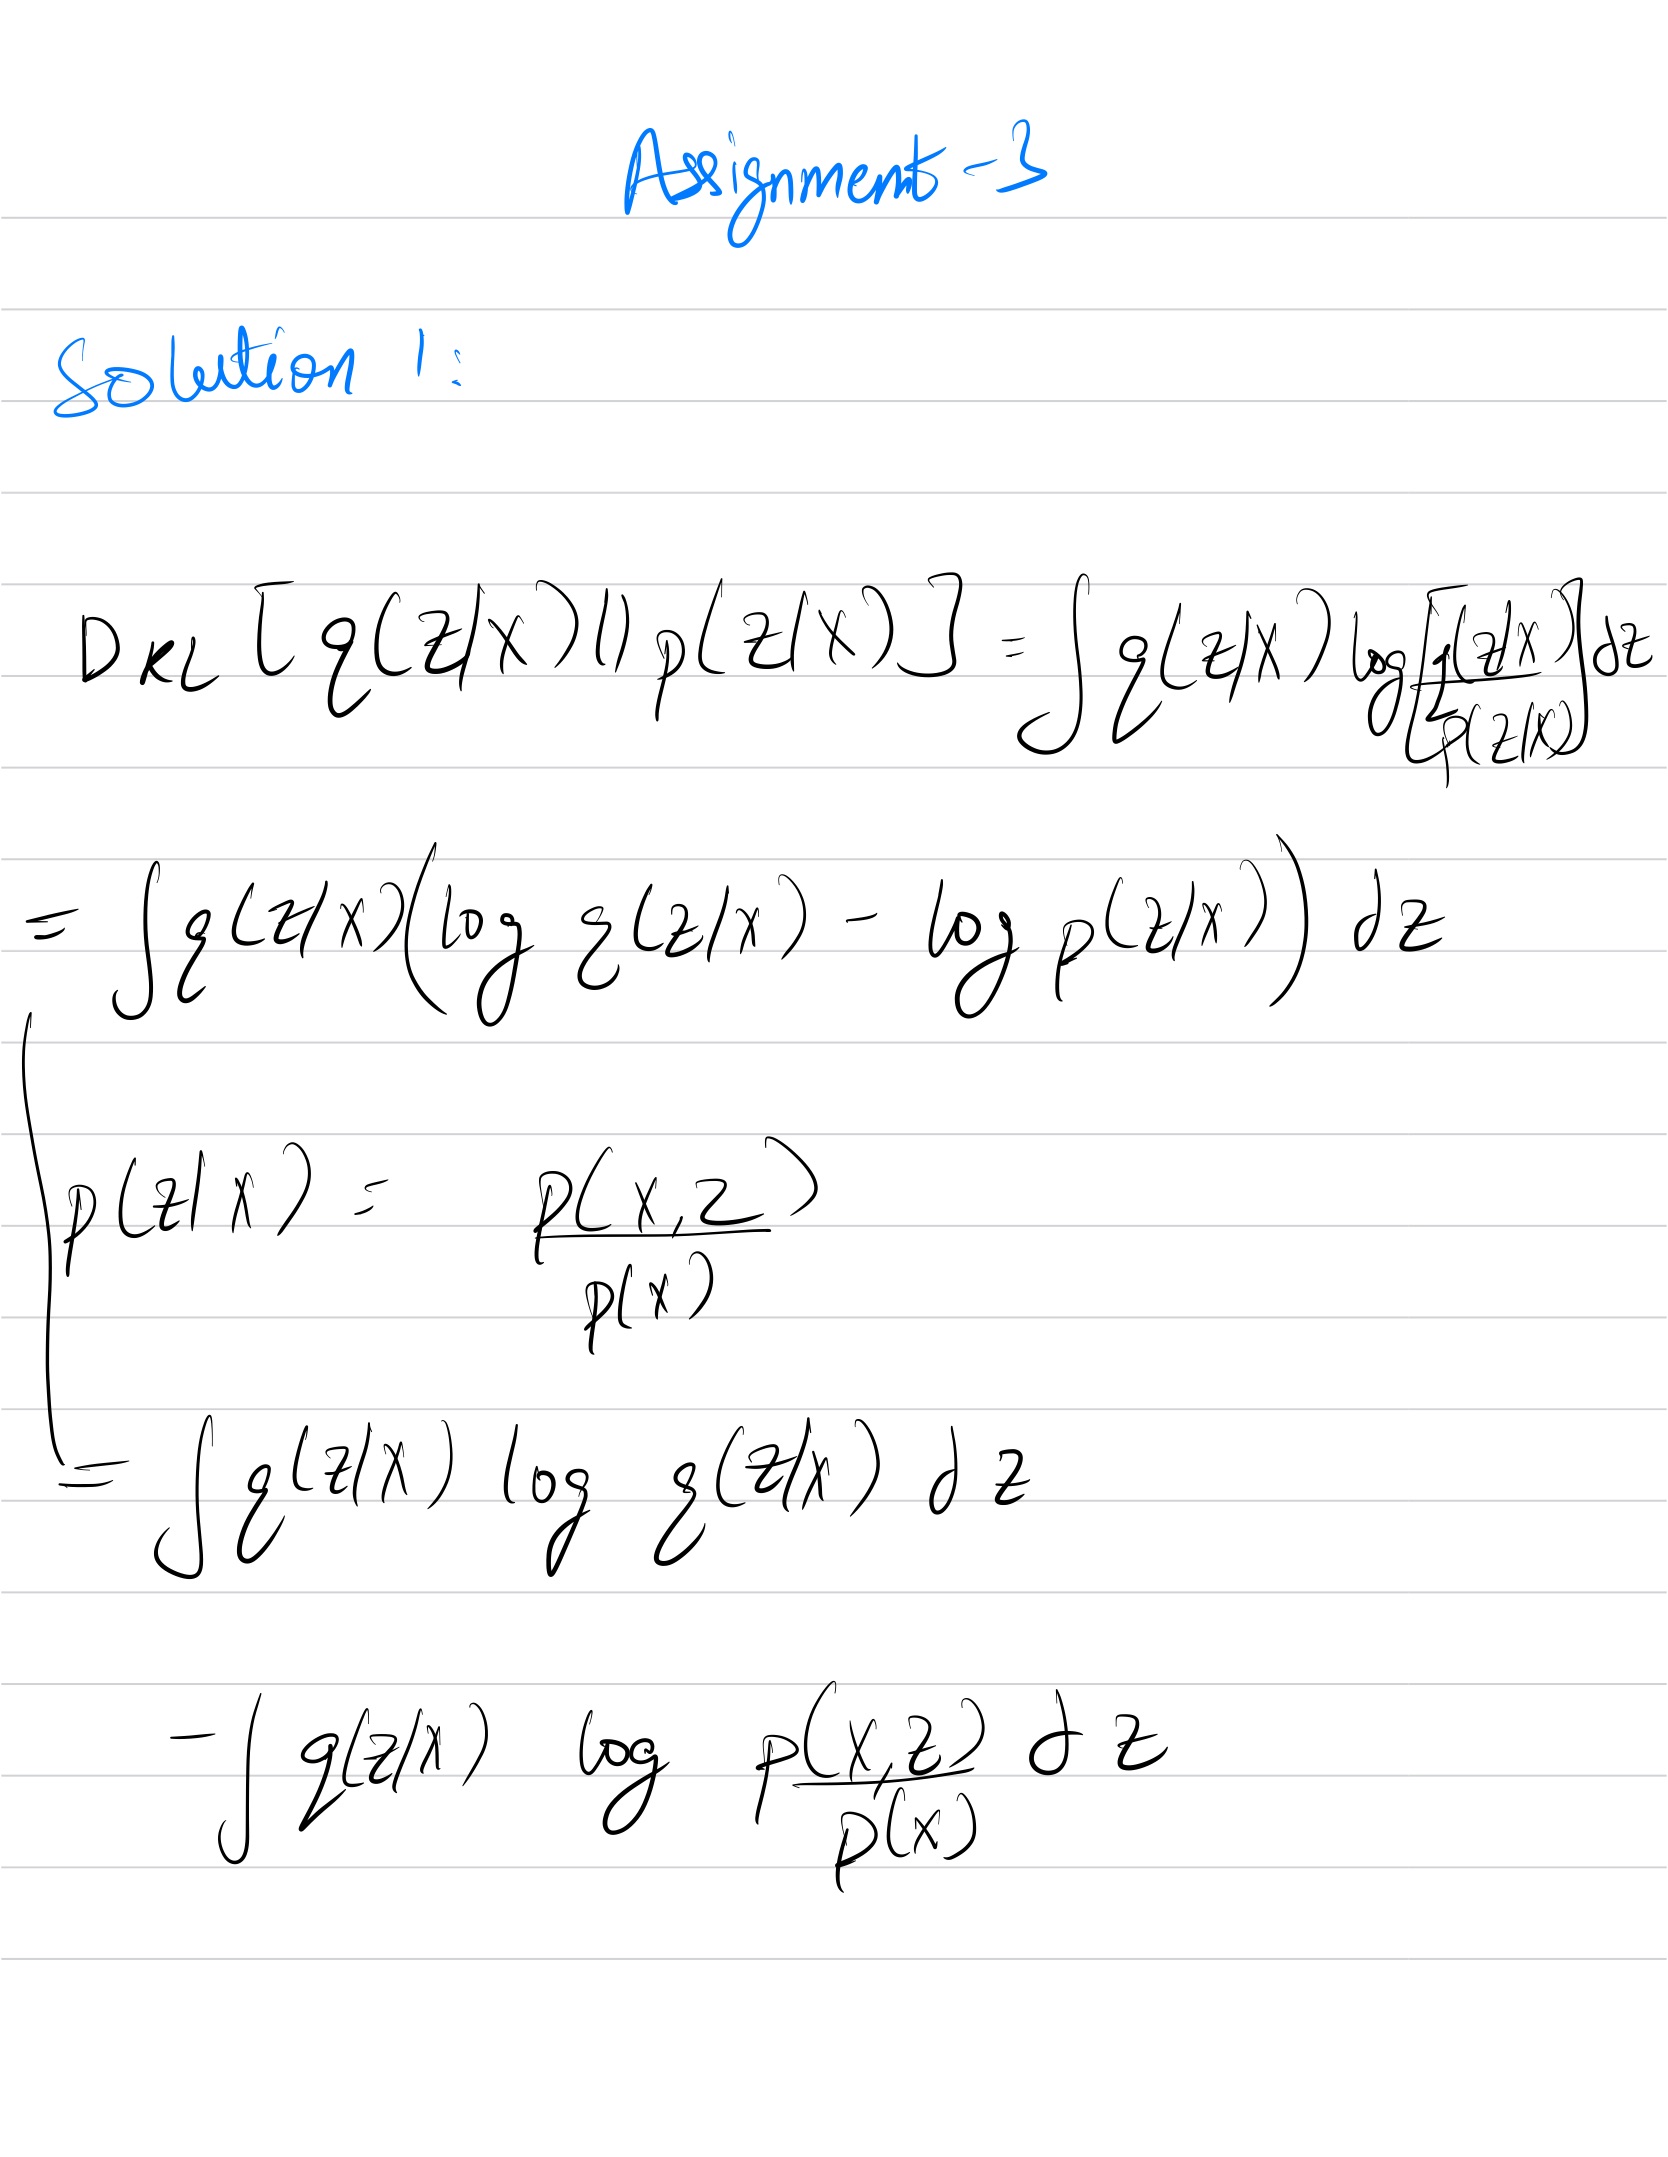 Assignment-3
Solution 1:
D_KL [q(z|x) || p(z|x)] = ∫ q(z|x) log [q(z|x) / p(z|x)] dz
= ∫ q(z|x) (log q(z|x) - log p(z|x)) dz
p(z|x) = p(x,z) / p(x)
= ∫ q(z|x) log q(z|x) dz
- ∫ q(z|x) log p(x,z) / p(x) dz